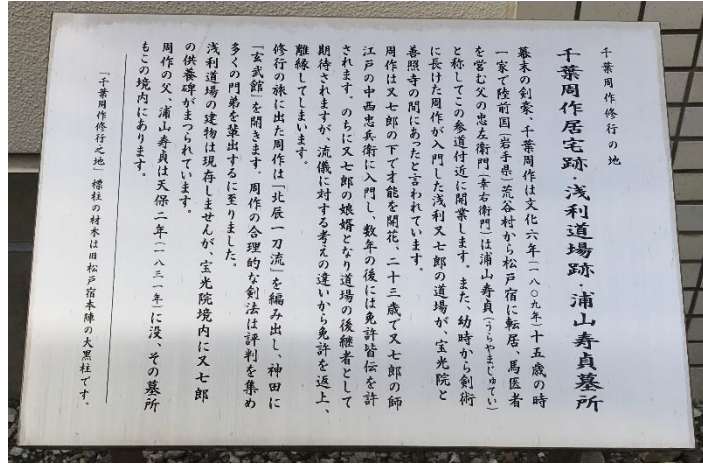 千葉周作修行の地
千葉周作居宅跡・浅利道場跡・浦山寿貞墓所
幕末の剣豪、千葉周作は文化六年(一八〇九年)十五歳の時
一家で陸前国(岩手県)荒谷村から松戸宿に転居、馬医者
を営む父の忠左衛門(幸右衛門)は浦山寿貞(うらやまじゅてい)
と称してこの参道付近に開業します。また、幼時から剣術
に長けた周作が入門した浅利又七郎の道場が、宝光院と
善照寺の間にあったと言われています。
周作は又七郎の下で才能を開花、二十三歳で又七郎の師
江戸の中西忠兵衛に入門し、数年の後には免許皆伝を許
されます。のちに又七郎の娘婿となり道場の後継者として
期待されますが、流儀に対する考えの違いから免許を返上、
離縁してしまいます。
修行の旅に出た周作は「北辰一刀流」を編み出し、神田に
「玄武館」を開きます。周作の合理的な剣法は評判を集め
多くの門弟を輩出するに至りました。
浅利道場の建物は現存しませんが、宝光院境内に又七郎
の供養碑がまつられています。
周作の父、浦山寿貞は天保二年(一八三一年)に没、その墓所
もこの境内にあります。
「千葉周作修行之地」標柱の材木は旧松戸宿本陣の大黒柱です。